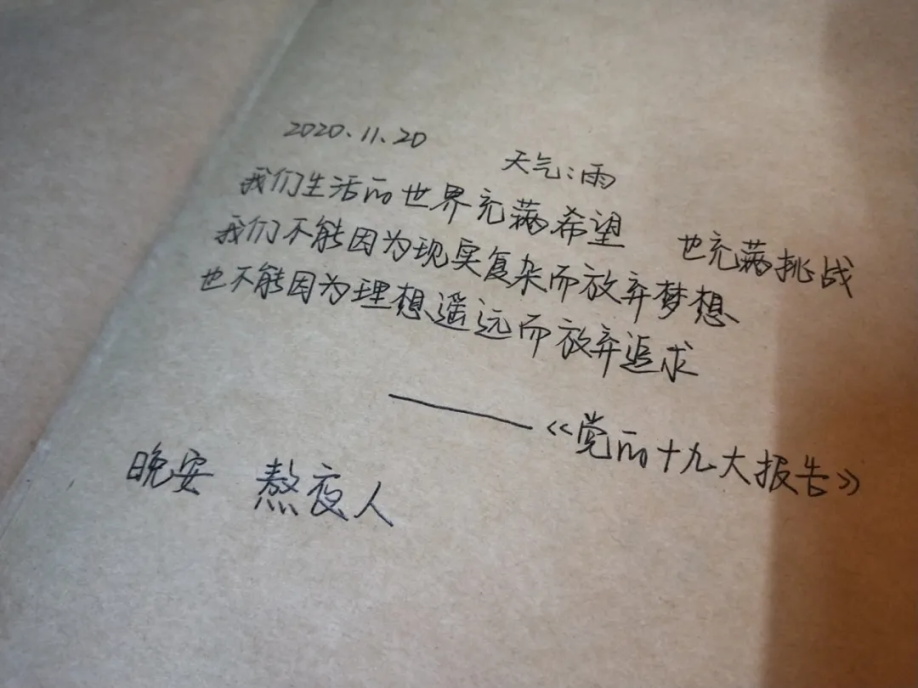 2020.11.20 天气:雨
我们生活的世界充满希望 也充满挑战
我们不能因为现实复杂而放弃梦想
也不能因为理想遥远而放弃追求
——《党的十九大报告》
晚安 熬夜人